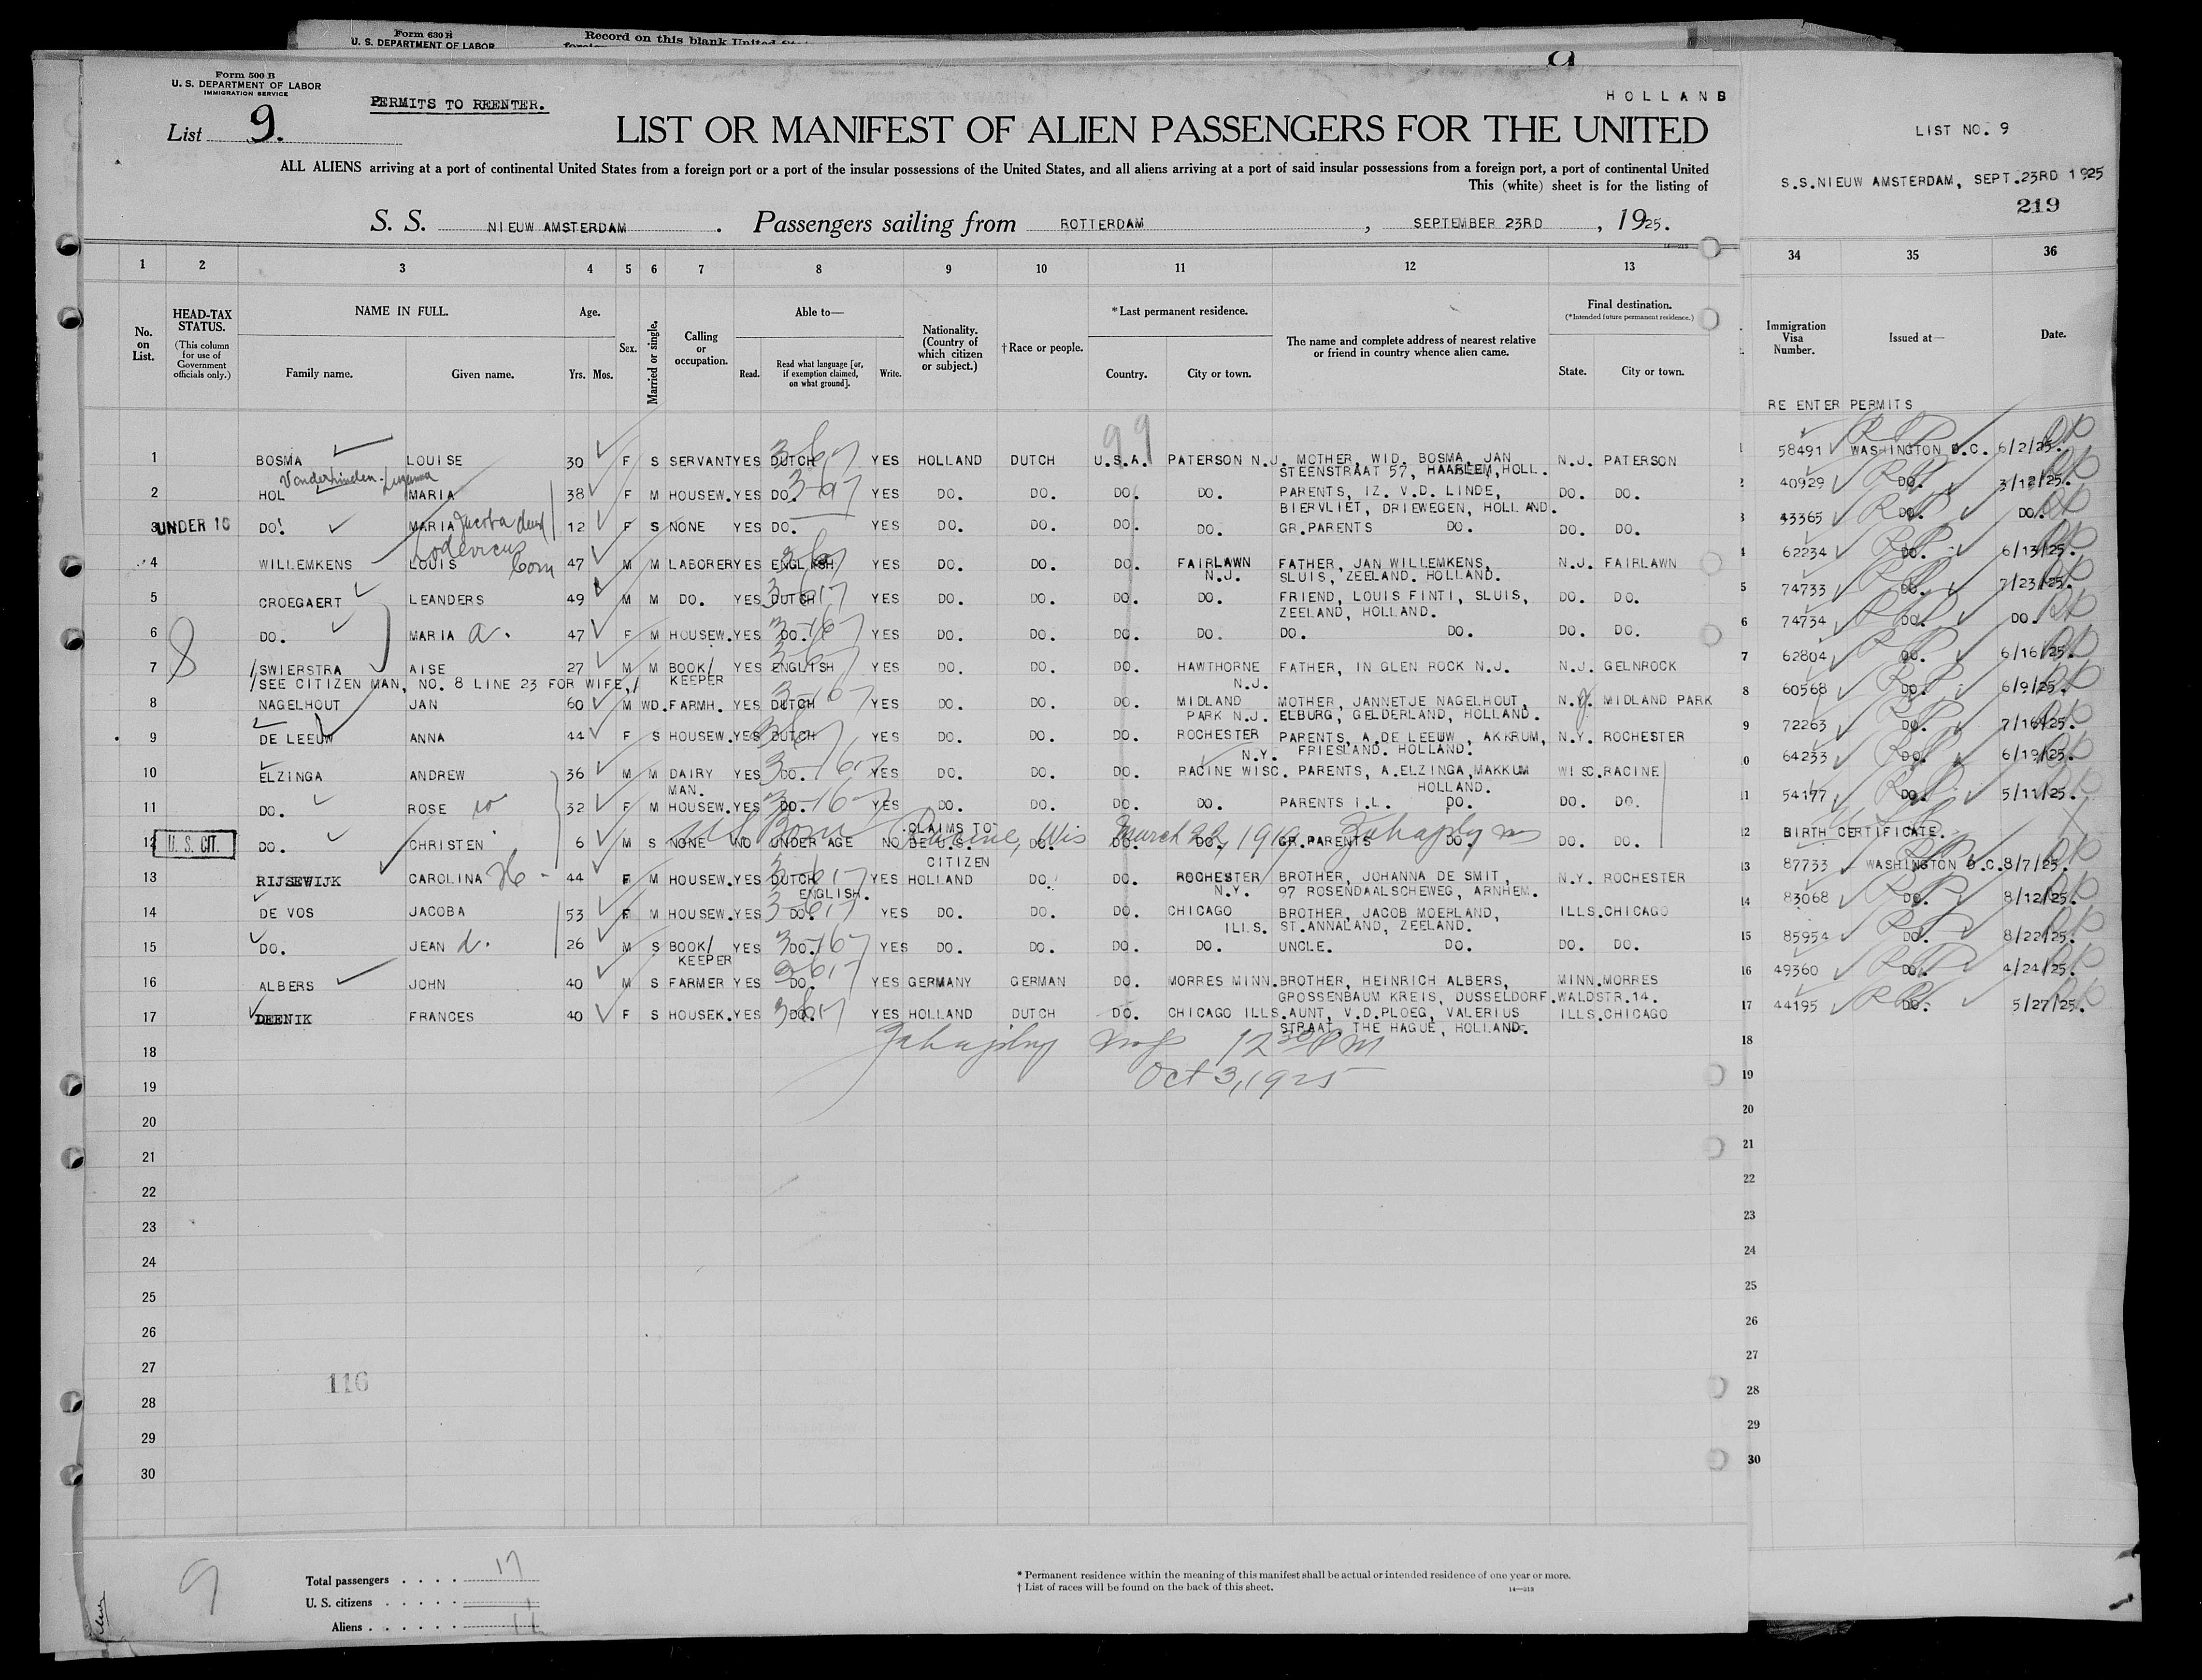 Form 630 B
U. S. DEPARTMENT OF LABOR
Record on this blank United
Form 500 B
U. S. DEPARTMENT OF LABOR
IMMIGRATION SERVICE
PERMITS TO REENTER.
HOLLAND
List 9.
LIST OR MANIFEST OF ALIEN PASSENGERS FOR THE UNITED
LIST NO. 9
ALL ALIENS arriving at a port of continental United States from a foreign port or a port of the insular possessions of the United States, and all aliens arriving at a port of said insular possessions from a foreign port, a port of continental United
This (white) sheet is for the listing of
S.S.NIEUW AMSTERDAM, SEPT.23RD 1925
219
S. S. NIEUW AMSTERDAM . Passengers sailing from ROTTERDAM , SEPTEMBER 23RD , 1925.
1 2 3 4 5 6 7 8 9 10 11 12 13 34 35 36
No. on List.
HEAD-TAX STATUS.
(This column for use of Government officials only.)
NAME IN FULL.
Family name. Given name.
Age.
Yrs. Mos.
Sex.
Married or single.
Calling or occupation.
Able to—
Read. Read what language [or, if exemption claimed, on what ground]. Write.
Nationality. (Country of which citizen or subject.)
†Race or people.
*Last permanent residence.
Country. City or town.
The name and complete address of nearest relative or friend in country whence alien came.
Final destination.
(*Intended future permanent residence.)
State. City or town.
Immigration Visa Number.
Issued at—
Date.
RE ENTER PERMITS
99
1 BOSMA LOUISE 30 F S SERVANT YES DUTCH YES HOLLAND DUTCH U.S.A. PATERSON N.J. MOTHER, WID. BOSMA, JAN STEENSTRAAT 57, HAARLEM, HOLL. N.J. PATERSON 58491 WASHINGTON D.C. 6/2/25.
2 HOL MARIA 38 F M HOUSEW. YES DO. YES DO. DO. DO. DO. PARENTS, IZ. V.D. LINDE, BIERVLIET, DRIEWEGEN, HOLLAND. DO. DO. 40929 DO. 3/12/25.
3 UNDER 16 DO. MARIA Jacoba 12 F S NONE YES DO. YES DO. DO. DO. DO. GR.PARENTS DO. DO. DO. 43365 DO. DO.
4 WILLEMKENS LOUIS Lodevicus Corn 47 M M LABORER YES ENGLISH YES DO. DO. DO. FAIRLAWN N.J. FATHER, JAN WILLEMKENS, SLUIS, ZEELAND. HOLLAND. N.J. FAIRLAWN 62234 DO. 6/13/25.
5 CROEGAERT LEANDERS 49 M M DO. YES DUTCH YES DO. DO. DO. DO. FRIEND, LOUIS FINTI, SLUIS, ZEELAND, HOLLAND. DO. DO. 74733 DO. 7/23/25.
6 DO. MARIA a. 47 F M HOUSEW. YES DO. YES DO. DO. DO. DO. DO. DO. DO. DO. 74734 DO. DO.
7 /SWIERSTRA AISE 27 M M BOOK/KEEPER YES ENGLISH YES DO. DO. DO. HAWTHORNE N.J. FATHER, IN GLEN ROCK N.J. N.J. GELNROCK 62804 DO. 6/16/25.
/SEE CITIZEN MAN, NO. 8 LINE 23 FOR WIFE,/
8 NAGELHOUT JAN 60 M WD. FARMH. YES DUTCH YES DO. DO. DO. MIDLAND PARK N.J. MOTHER, JANNETJE NAGELHOUT, ELBURG, GELDERLAND, HOLLAND. N.J. MIDLAND PARK 60568 DO. 6/9/25.
9 DE LEEUW ANNA 44 F S HOUSEW. YES DUTCH YES DO. DO. DO. ROCHESTER N.Y. PARENTS, A.DE LEEUW, AKKRUM, FRIESLAND. HOLLAND. N.Y. ROCHESTER 72263 DO. 7/16/25.
10 ELZINGA ANDREW 36 M M DAIRY MAN. YES DO. YES DO. DO. DO. RACINE WISC. PARENTS, A.ELZINGA, MAKKUM HOLLAND. WISC. RACINE 64233 DO. 6/19/25.
11 DO. ROSE 32 F M HOUSEW. YES DO. YES DO. DO. DO. DO. PARENTS I.L. DO. DO. DO. 54177 DO. 5/11/25.
12 U. S. CIT. DO. CHRISTEN 6 M S NONE NO UNDER AGE NO CLAIMS TO BE U.S. CITIZEN DO. DO. DO. GR.PARENTS DO. DO. DO. BIRTH CERTIFICATE.
Born Racine, Wis March 22, 1919
13 RIJSEWIJK CAROLINA H 44 F M HOUSEW. YES DUTCH ENGLISH. YES HOLLAND DO. DO. ROCHESTER N.Y. BROTHER, JOHANNA DE SMIT, 97 ROSENDAALSCHEWEG, ARNHEM. N.Y. ROCHESTER 87733 WASHINGTON D.C. 8/7/25.
14 DE VOS JACOBA 53 F M HOUSEW. YES DO. YES DO. DO. DO. CHICAGO ILLS. BROTHER, JACOB MOERLAND, ST.ANNALAND, ZEELAND. ILLS. CHICAGO 83068 DO. 8/12/25.
15 DO. JEAN d. 26 M S BOOK/KEEPER YES DO. YES DO. DO. DO. DO. UNCLE. DO. DO. DO. 85954 DO. 8/22/25.
16 ALBERS JOHN 40 M S FARMER YES DO. YES GERMANY GERMAN DO. MORRES MINN. BROTHER, HEINRICH ALBERS, GROSSENBAUM KREIS, DUSSELDORF.WALDSTR.14. MINN. MORRES 49360 DO. 4/24/25.
17 DEENIK FRANCES 40 F S HOUSEK. YES DO. YES HOLLAND DUTCH DO. CHICAGO ILLS. AUNT, V.D.PLOEG, VALERIUS STRAAT, THE HAGUE, HOLLAND. ILLS. CHICAGO 44195 DO. 5/27/25.
18 12 30 PM
19 Oct 3, 1925
20
21
22
23
24
25
26
27
116
28
29
30
9
Total passengers . . . . 17
U. S. citizens . . . . . 1
Aliens . . . . . .
* Permanent residence within the meaning of this manifest shall be actual or intended residence of one year or more.
† List of races will be found on the back of this sheet. 14—213